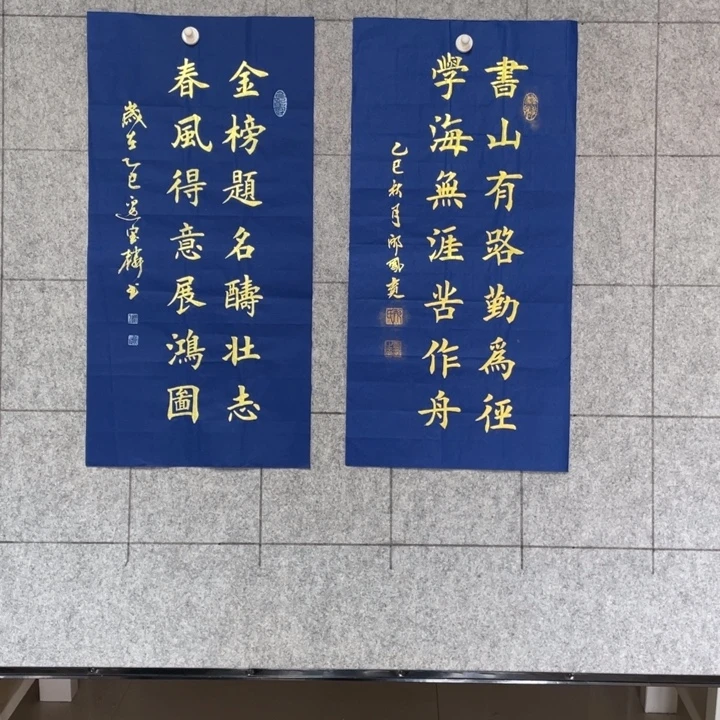 書山有路勤為徑
學海無涯苦作舟
乙巳秋月
金榜題名醻壯志
春風得意展鴻圖
歲在乙巳